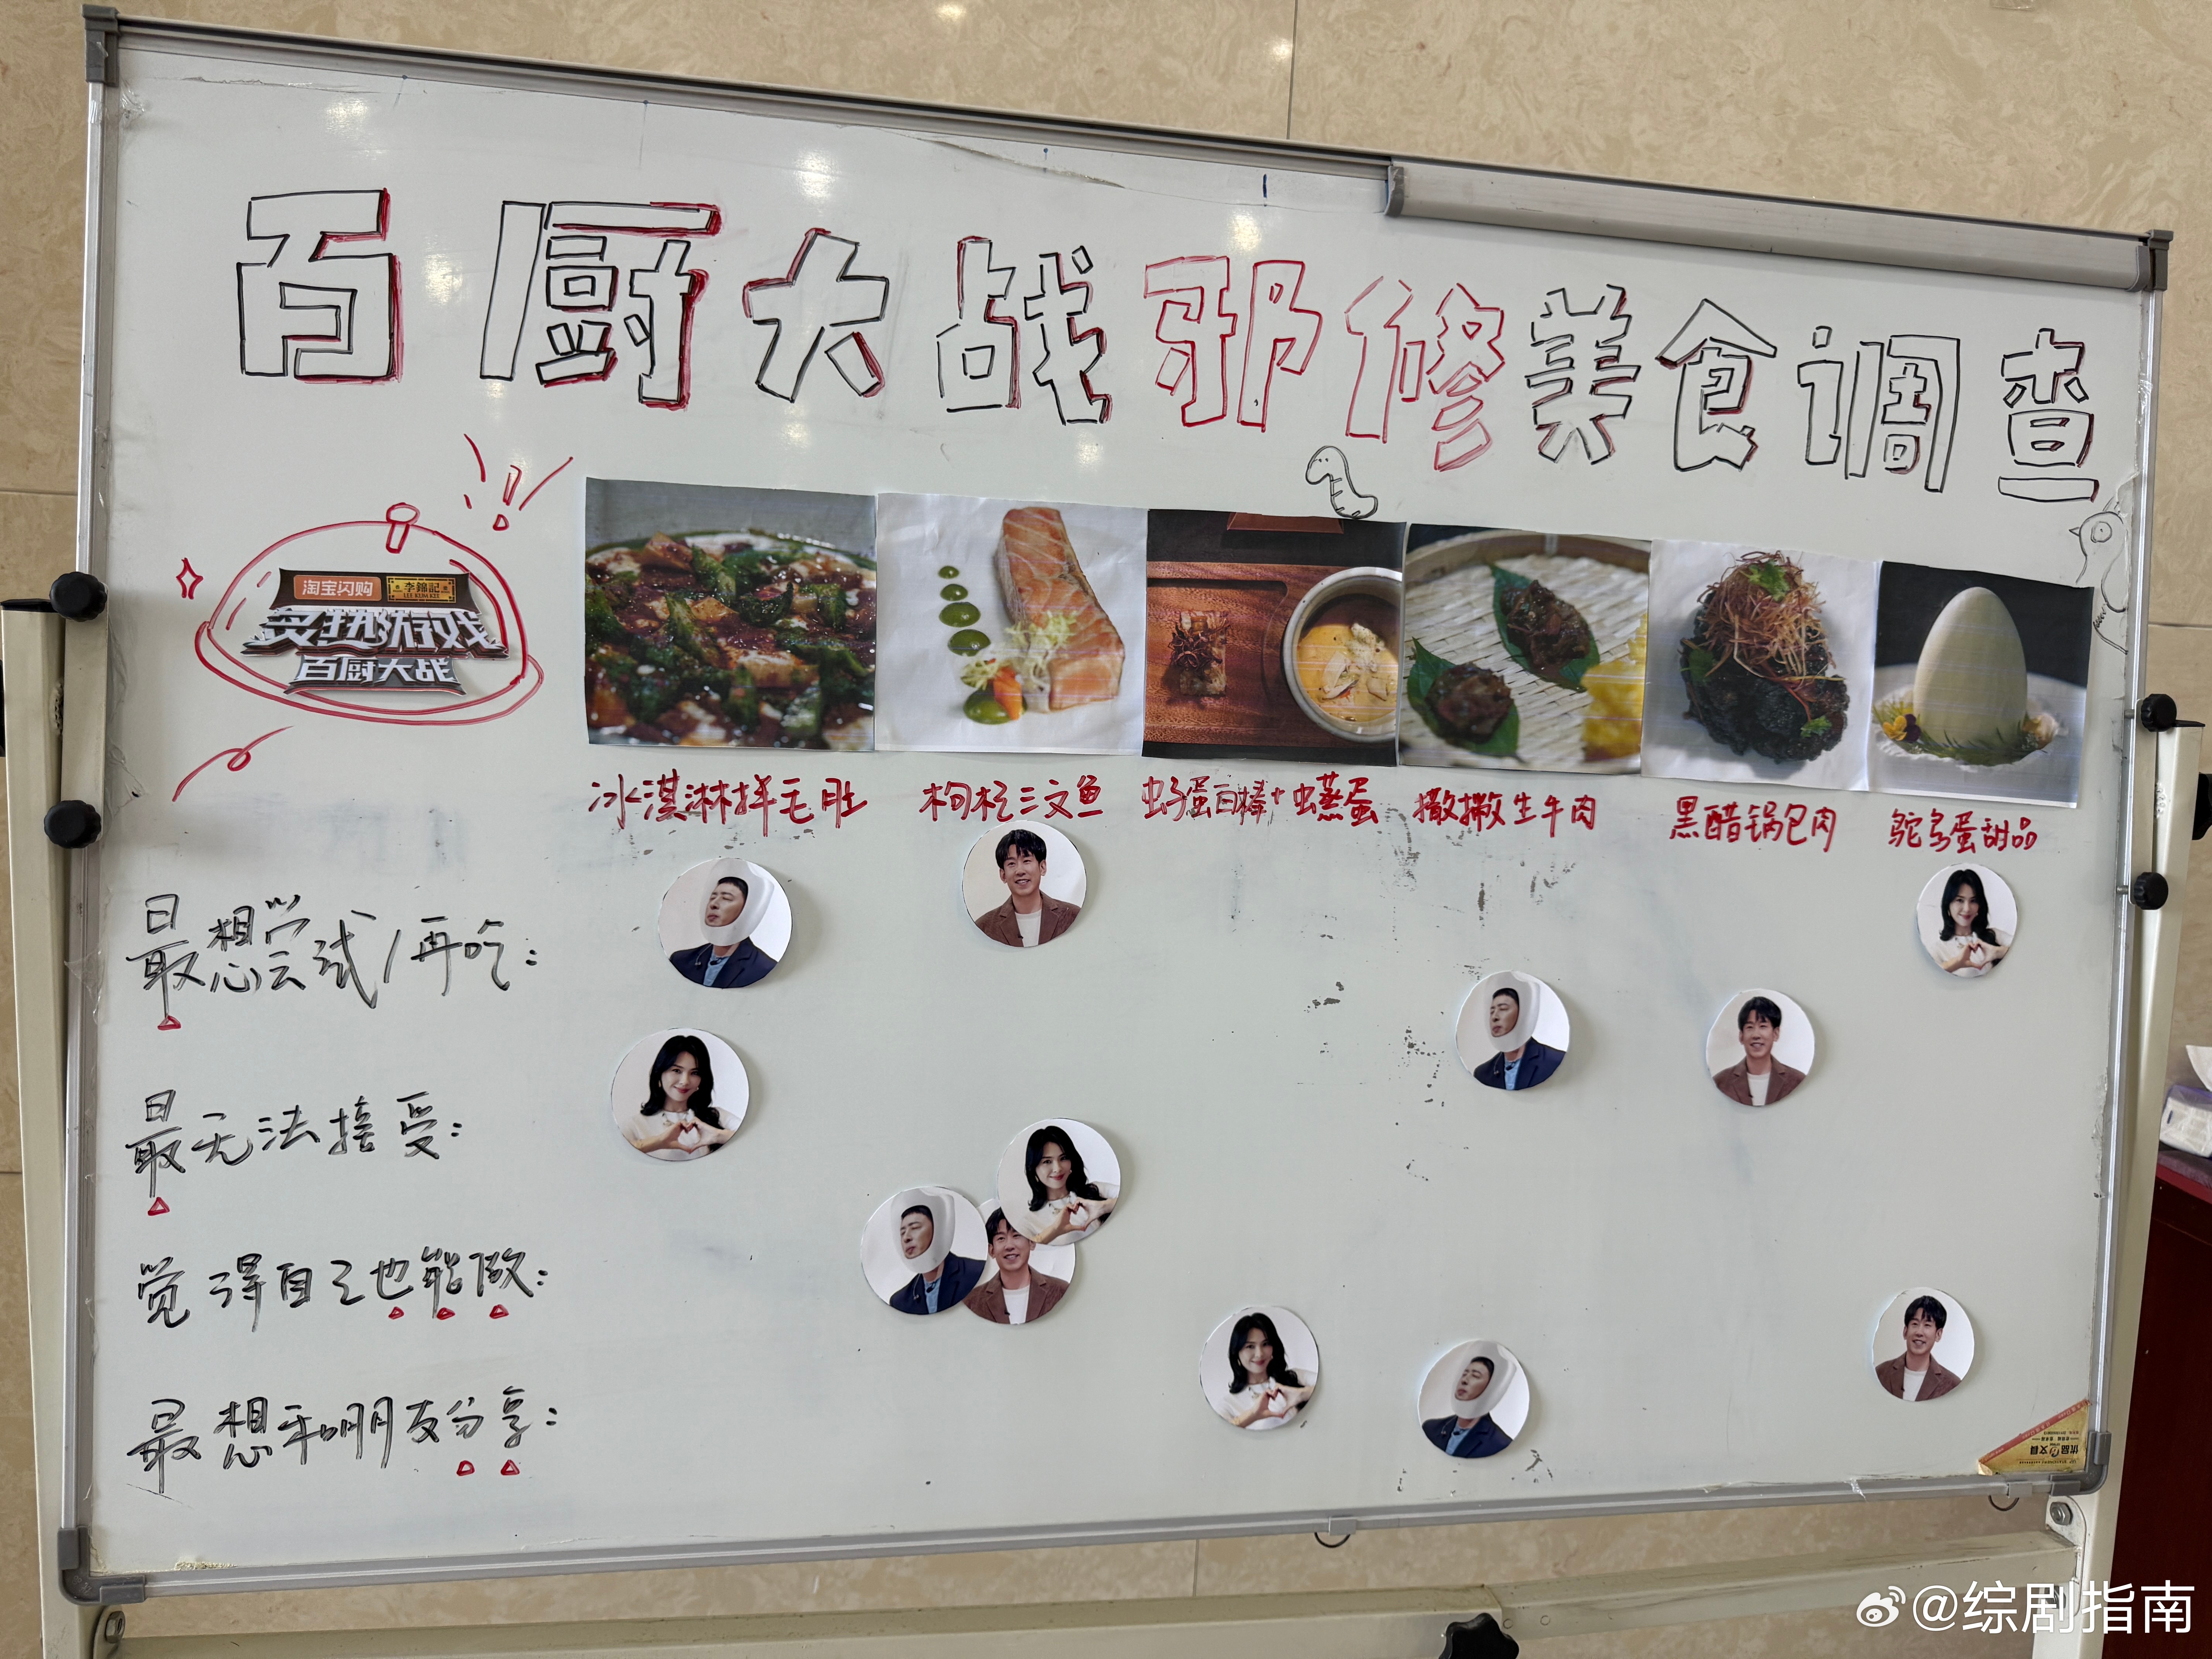 百厨大战邪修美食调查
淘宝闪购 李錦記
LEE KUM KEE
炙热游戏
百厨大战
冰淇淋拌毛肚 枸杞三文鱼 虫子蛋白棒+虫蒸蛋 撒撇生牛肉 黑醋锅包肉 鸵鸟蛋甜品
最想尝试/再吃:
最无法接受:
觉得自己也能做:
最想和朋友分享:
优品文具
@综剧指南